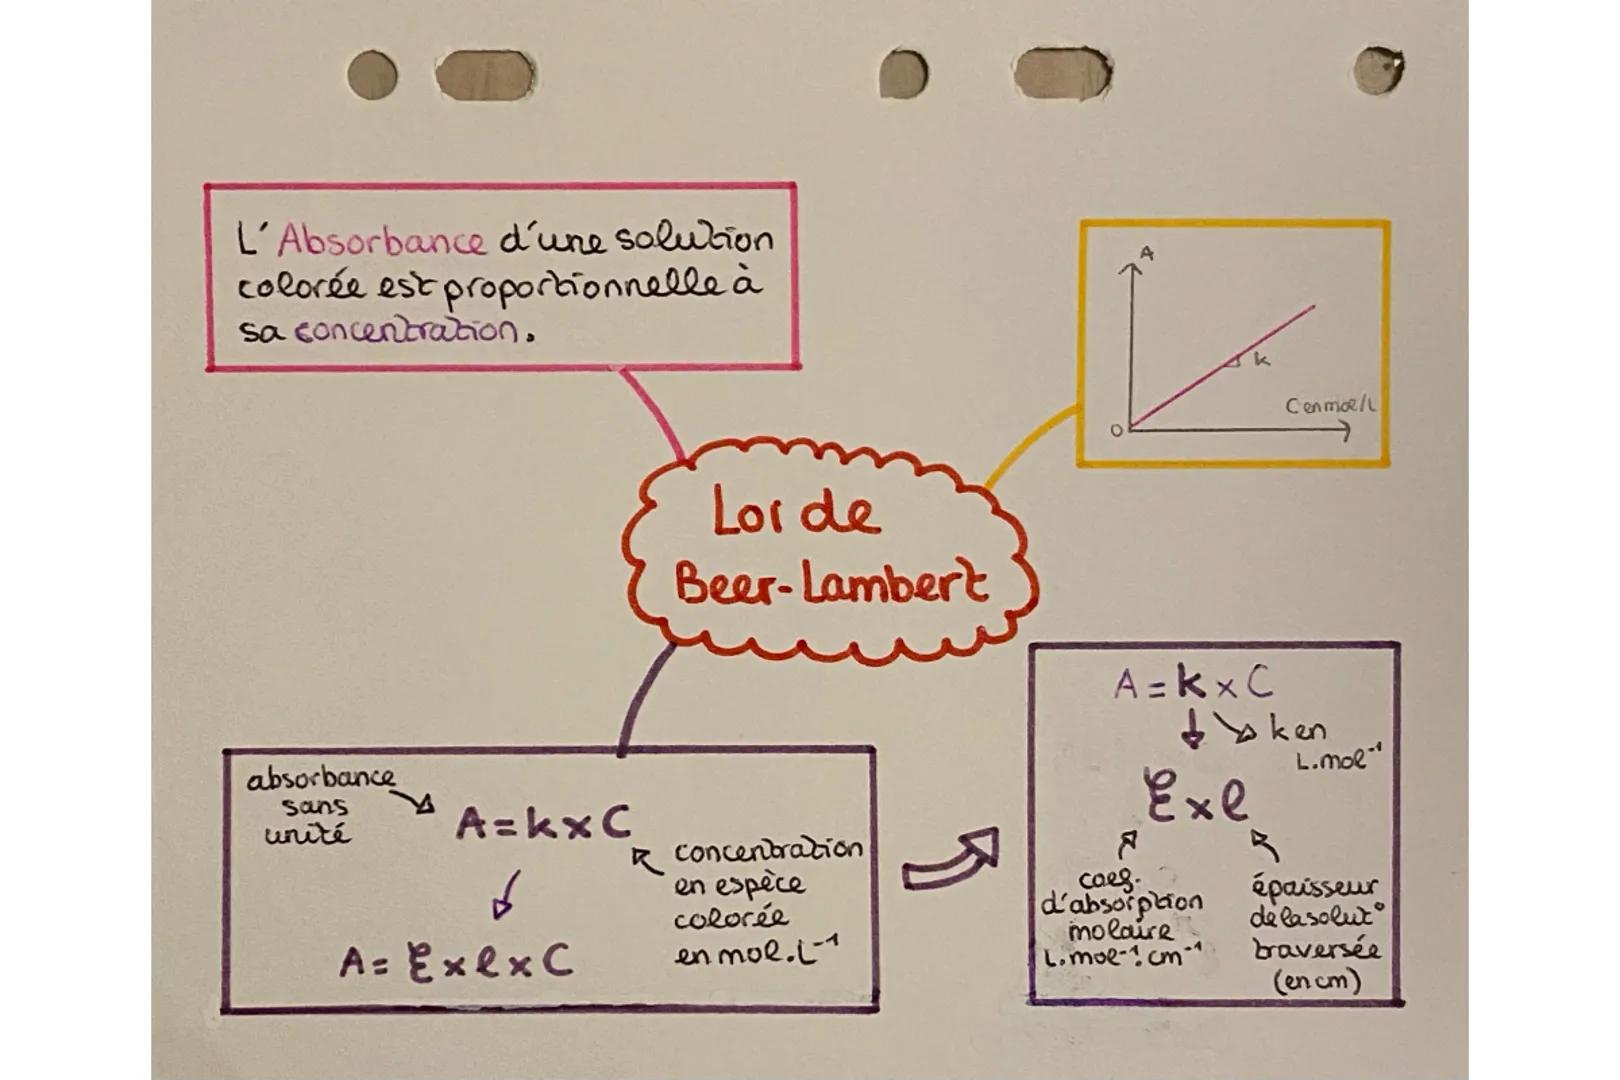 L'Absorbance d'une solution
colorée est proportionnelle à
sa concentration.
A
k
C en mol/L
O
Loi de
Beer-Lambert
absorbance
sans
unité
A = k x C
concentration
en espèce
colorée
en mol.L⁻¹
A = ξ x l x C
A = k x C
k en
L.mol⁻¹
ξ x l
coef.
d'absorption
molaire
L.mol⁻¹.cm⁻¹
épaisseur
de la solut°
traversée
(en cm)